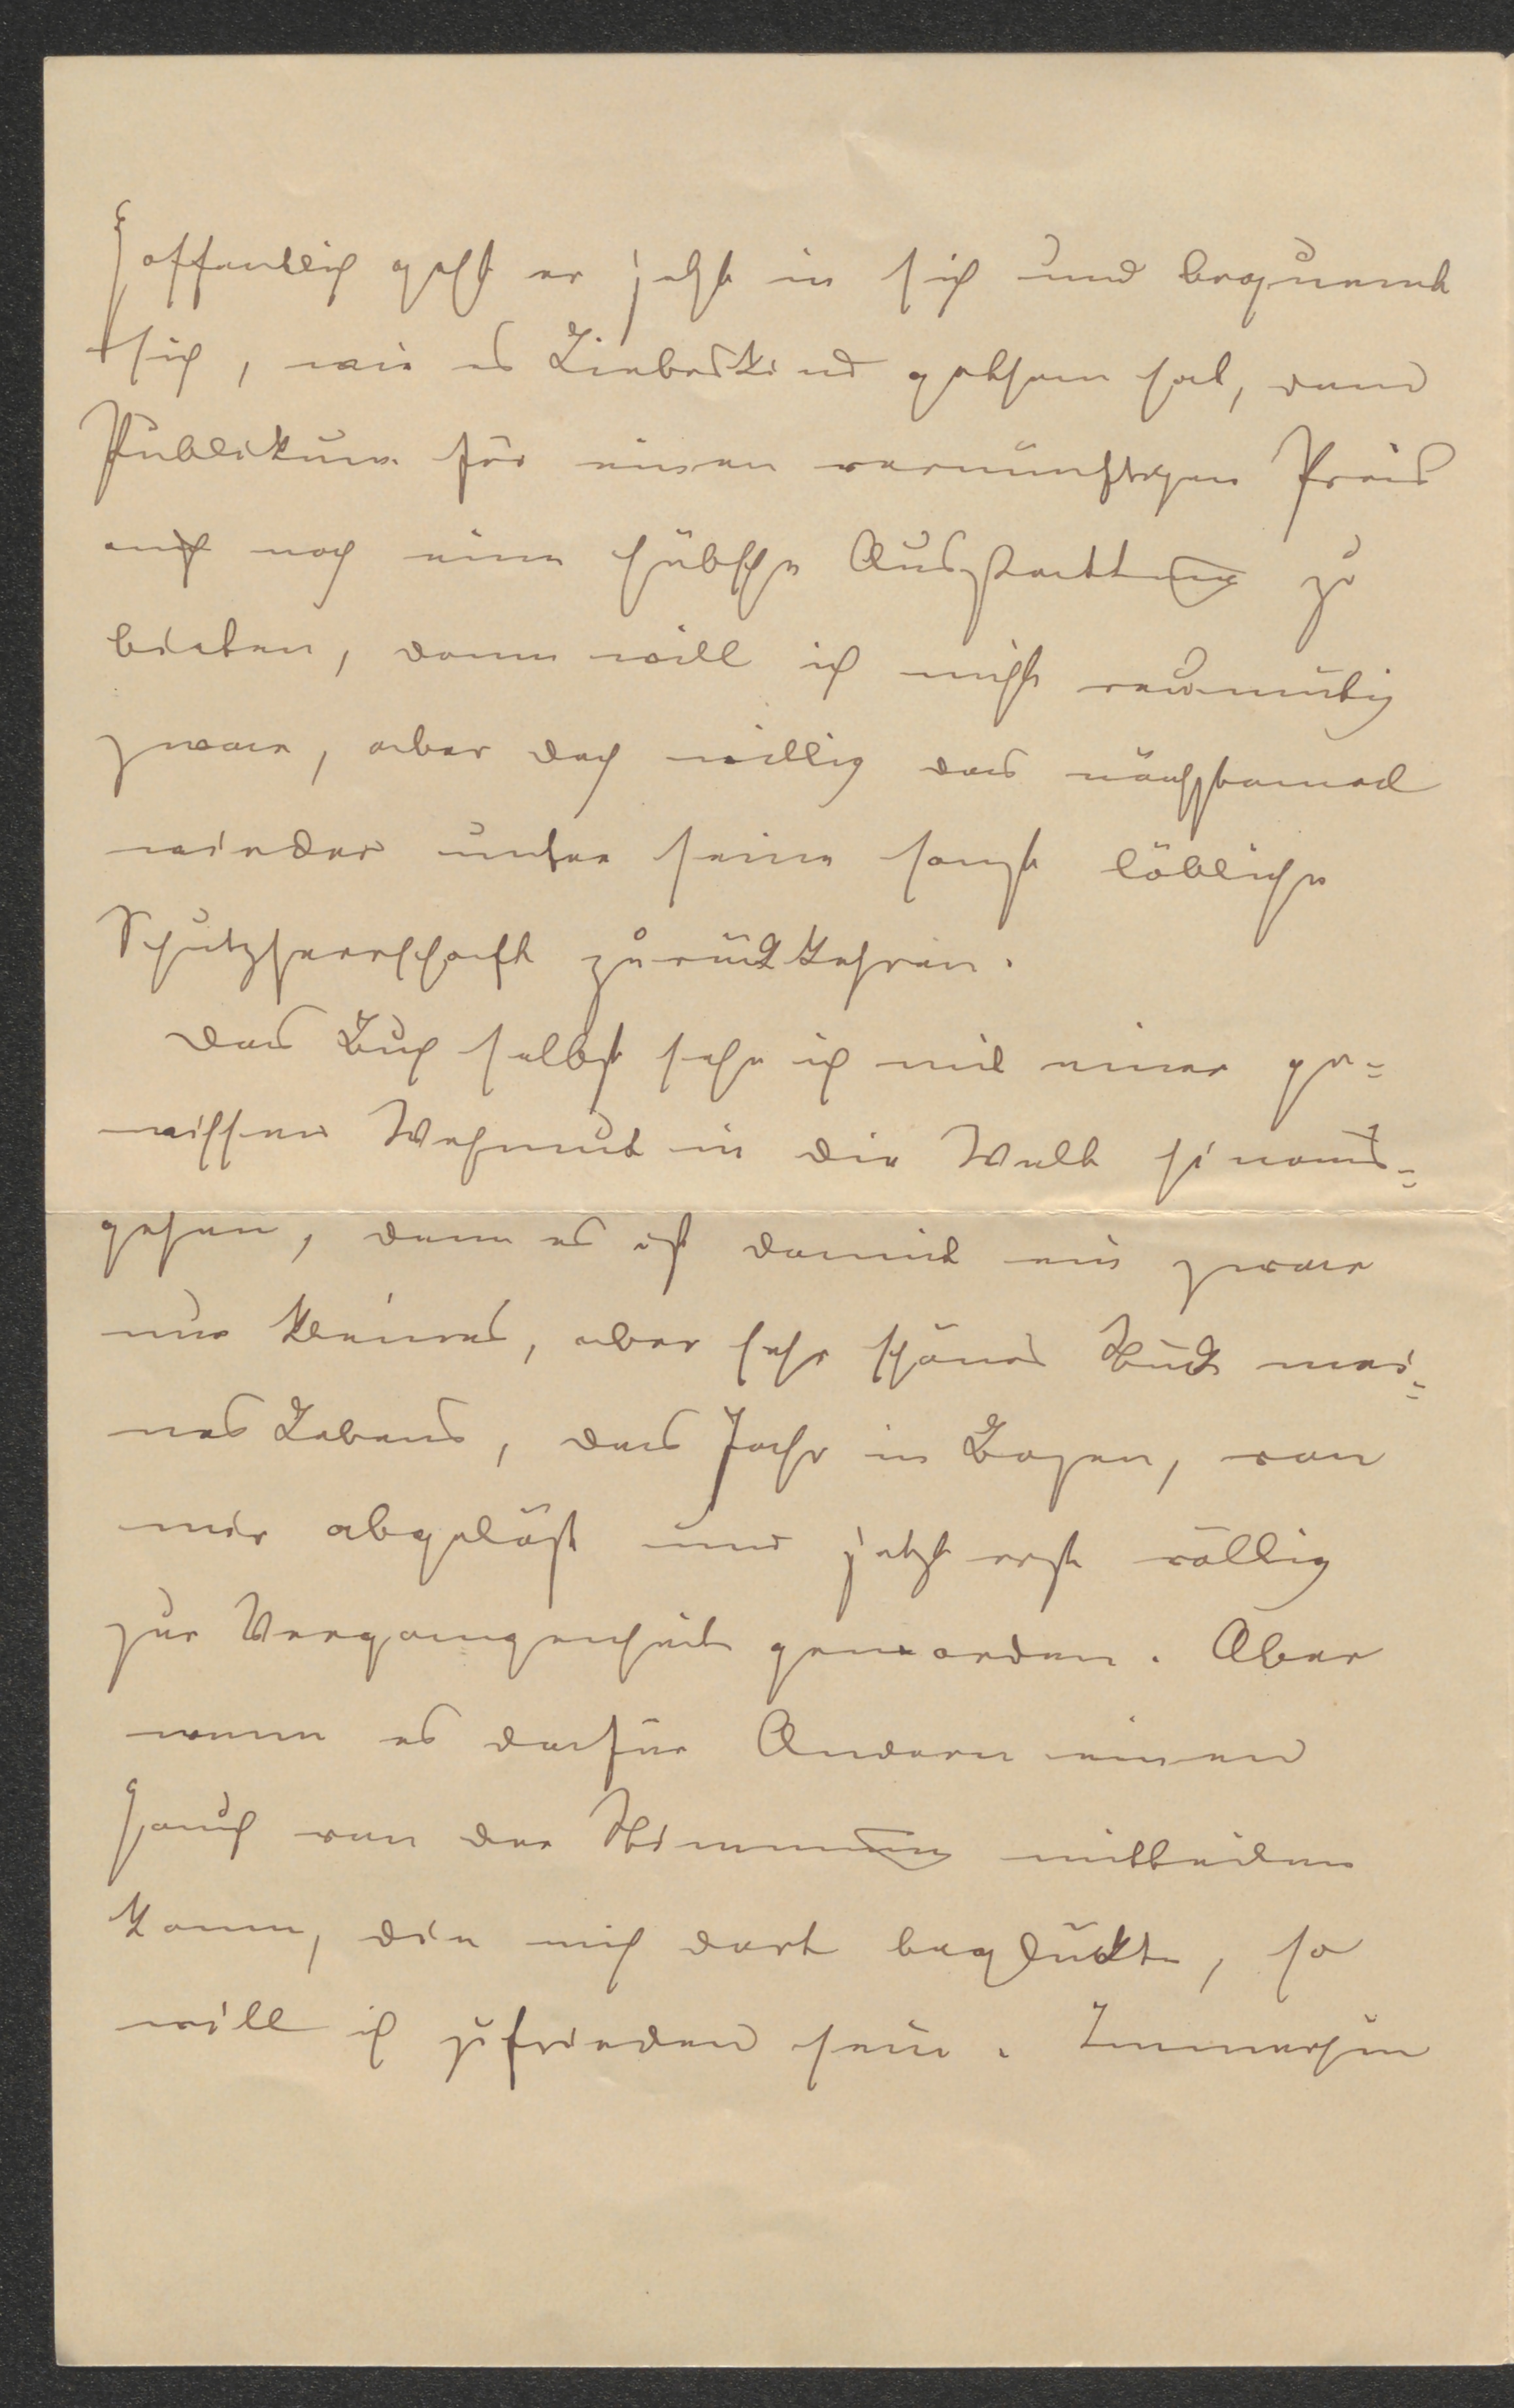 Hoffentlich geht er jetzt in sich und bequemt
sich, wie es Liebeskind gethan hat, dem
Publikum für einen vernünftigen Preis
auch noch eine hübsche Ausstattung zu
bieten, dann will ich nicht reumütig
zwar, aber doch willig das nächstemal
wieder unter seine sonst löbliche
Schutzherrschaft zurückkehren.
Das Buch selbst sehe ich mit einer ge=
wissen Wehmut in die Welt hinaus=
gehen, denn es ist damit ein zwar
nur kleines, aber sehr schönes Stück mei=
nes Lebens, das Jahr in Bozen, von
mir abgelöst und jetzt erst völlig
zur Vergangenheit geworden. Aber
wenn es dafür Andern einen
Hauch von der Stimmung mitteilen
kann, die mich dort beglückte, so
will ich zufrieden sein. Immerhin